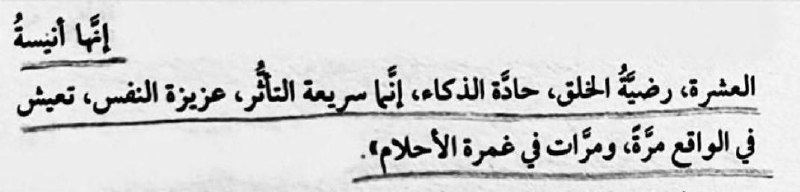 إنَّها أنيسةُ
العشرة، رضيَّةُ الخلق، حادَّة الذكاء، إنَّما سريعة التأثُّر، عزيزة النفس، تعيش
في الواقع مرَّةً، ومرَّات في غمرة الأحلام».